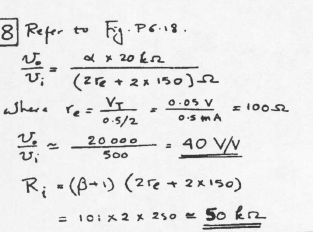 8 Refer to Fig. P6.18.
υo/υi = α × 20 kΩ / (2re + 2 × 150) Ω
where re = VT / 0.5/2 = 0.05 V / 0.5 mA = 100Ω
υo/υi ≃ 20 000 / 500 = 40 V/V
Ri = (β+1) (2re + 2×150)
= 101 × 2 × 250 ≃ 50 kΩ